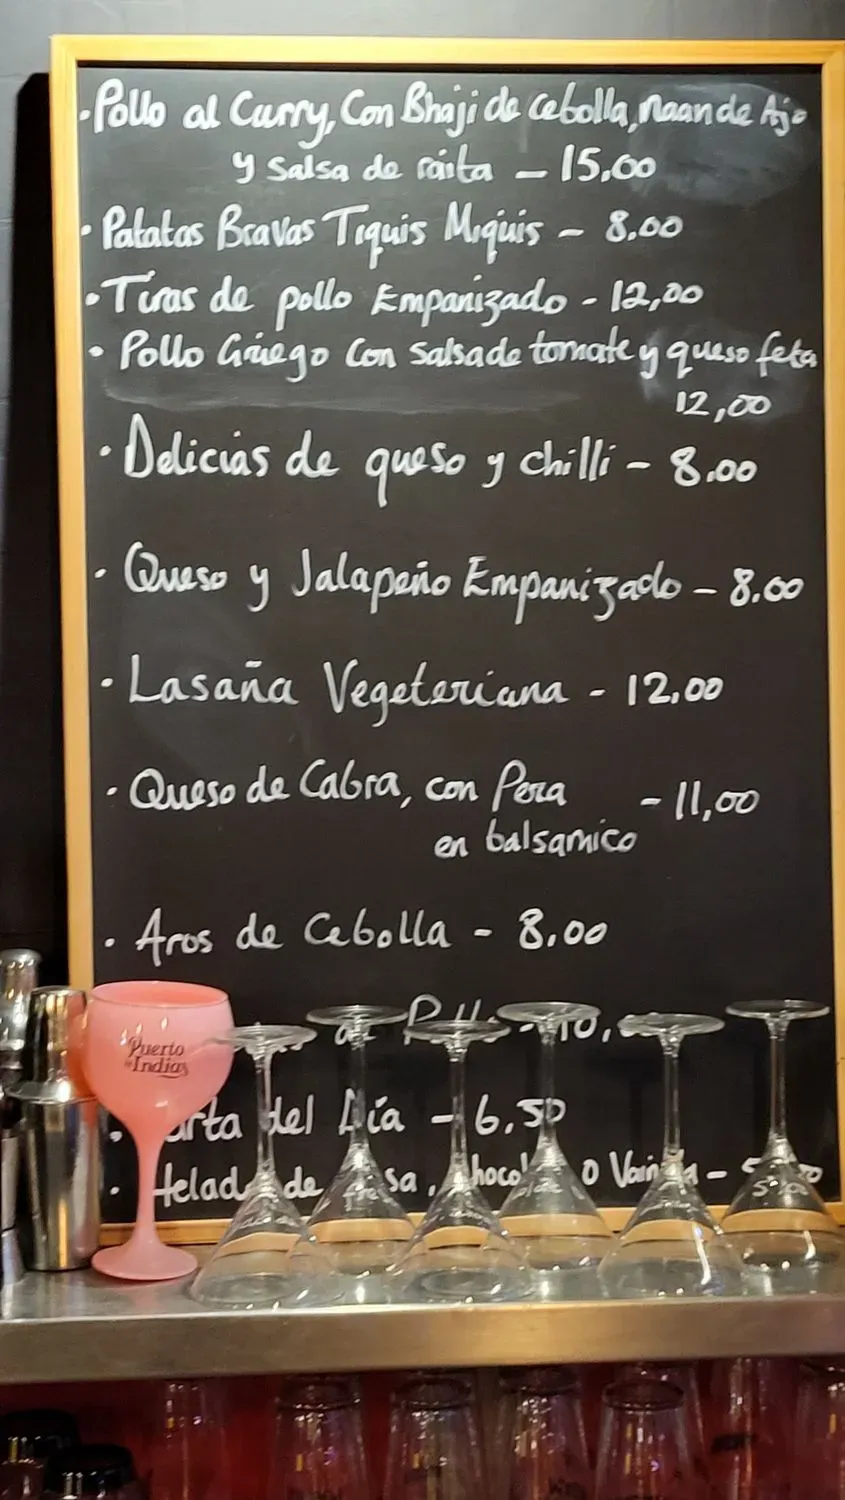 ·Pollo al Curry, Con Bhaji de cebolla, naan de Ajo
y salsa de raita - 15,00
· Patatas Bravas Tiquis Miquis - 8.00
· Tiras de pollo Empanizado - 12,00
· Pollo Griego Con salsa de tomate y queso feta
12,00
· Delicias de queso y chilli - 8.00
· Queso y Jalapeño Empanizado - 8.00
· Lasaña Vegeteriana - 12.00
· Queso de Cabra, con Pera - 11,00
en balsamico
· Aros de Cebolla - 8,00
de Pollo - 10,
Puerto
de Indias
· del Día - 6.50
· Helado de fresa, chocolate o Vainilla -